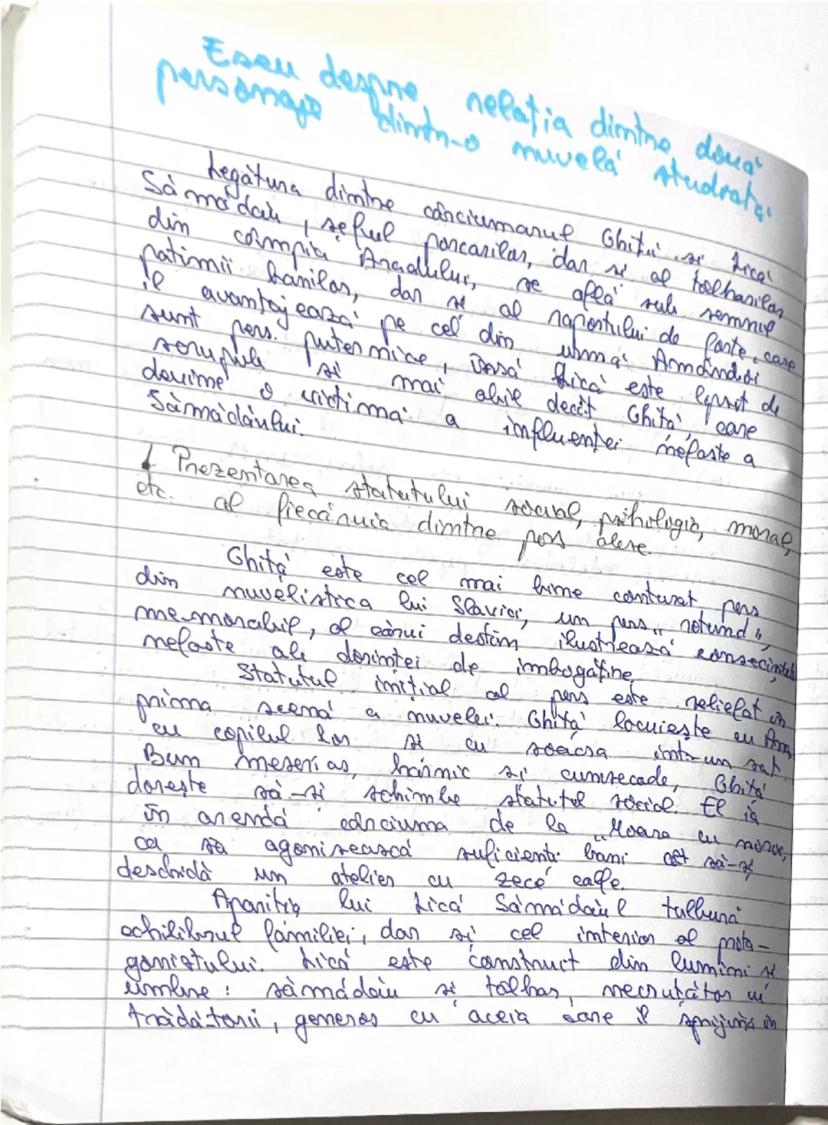 Eseu despre relația dintre două
personaje dintr-o nuvelă studiată.
Legătura dintre cârciumarul Ghiță și Lică
Sămădău, șeful porcarilor, dar și al tâlharilor
din câmpia Aradului, se află sub semnul
patimii banilor, dar și al raportului de forțe, care
îl avantajează pe cel din urmă. Amândoi
sunt pers. puternice, însă Lică este lipsit de
scrupule și mai abil decât Ghiță, care
devine o victimă a influenței nefaste a
Sămădăului.
Prezentarea statutului social, psihologic, moral,
etc. al fiecăruia dintre pers alese
Ghiță este cel mai bine conturat pers
din nuvelistica lui Slavici, un pers „rotund”,
memorabil, al cărui destin ilustrează consecințele
nefaste ale dorinței de îmbogățire.
Statutul inițial al pers este reliefat în
prima scenă a nuvelei. Ghiță locuiește cu Ana
cu copilul lor și cu soacra într-un sat.
Bun meseriaș, harnic și cumsecade, Ghiță
dorește să-și schimbe statutul social. El ia
în arendă cârciuma de la „Moara cu noroc,
ca să agonisească suficienți bani cât să-și
deschidă un atelier cu zece calfe.
Apariția lui Lică Sămădăul tulbură
echilibrul familiei, dar și cel interior al prota-
gonistului. Lică este construct din lumini și
umbre: sămădău și tâlhar, necruțător cu
trădătorii, generos cu aceia care îl sprijină în